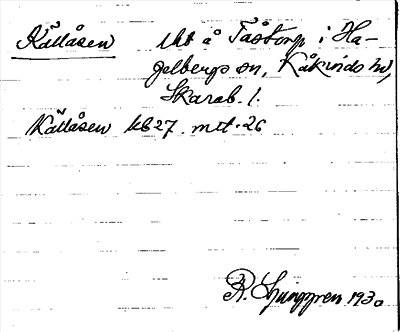 Källåsen lht å Tåstorp i Ha-
gelbergs sn, Kåkinds hd,
Skarab. l.
Källåsen kb 27. mtt. 26
R. Ljunggren 1930